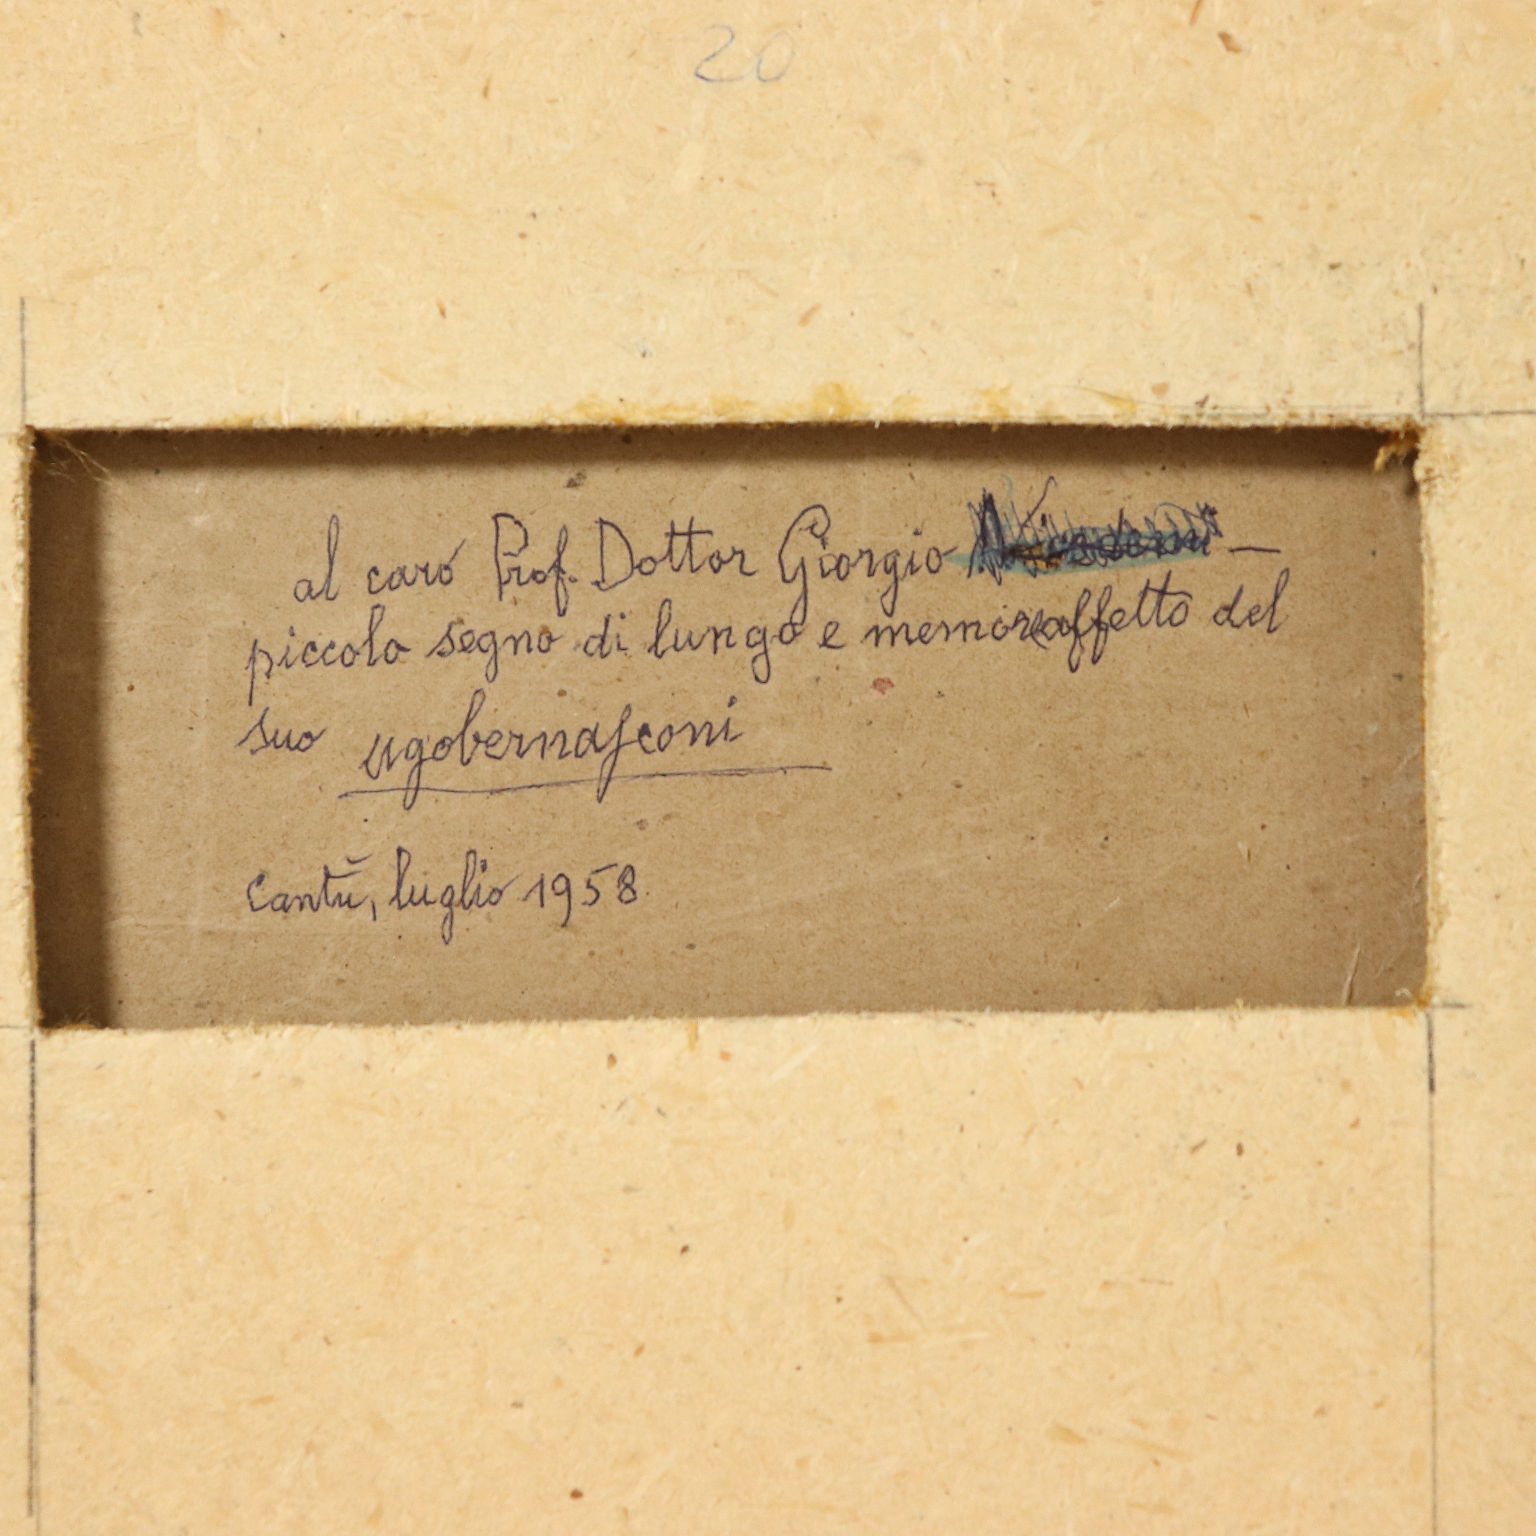 20
al caro Prof. Dottor Giorgio –
piccolo segno di lungo e memore affetto del
suo ugobernasconi
Cantù, luglio 1958.